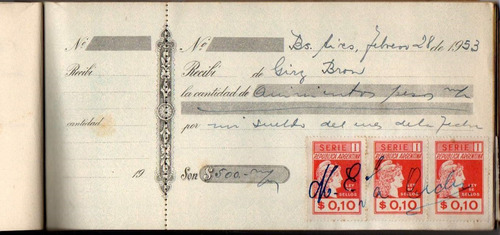 Nº
Recibí
cantidad
19
Nº Bs. Aires, febrero 28 de 1953
Recibí de Girz Bron
la cantidad de quinientos pesos m/n
por mi sueldo del mes de la fecha
Son $ 500.- m/n
SERIE I SERIE I SERIE I
REPUBLICA ARGENTINA REPUBLICA ARGENTINA REPUBLICA ARGENTINA
LEY DE SELLOS LEY DE SELLOS LEY DE SELLOS
$ 0,10 $ 0,10 $ 0,10